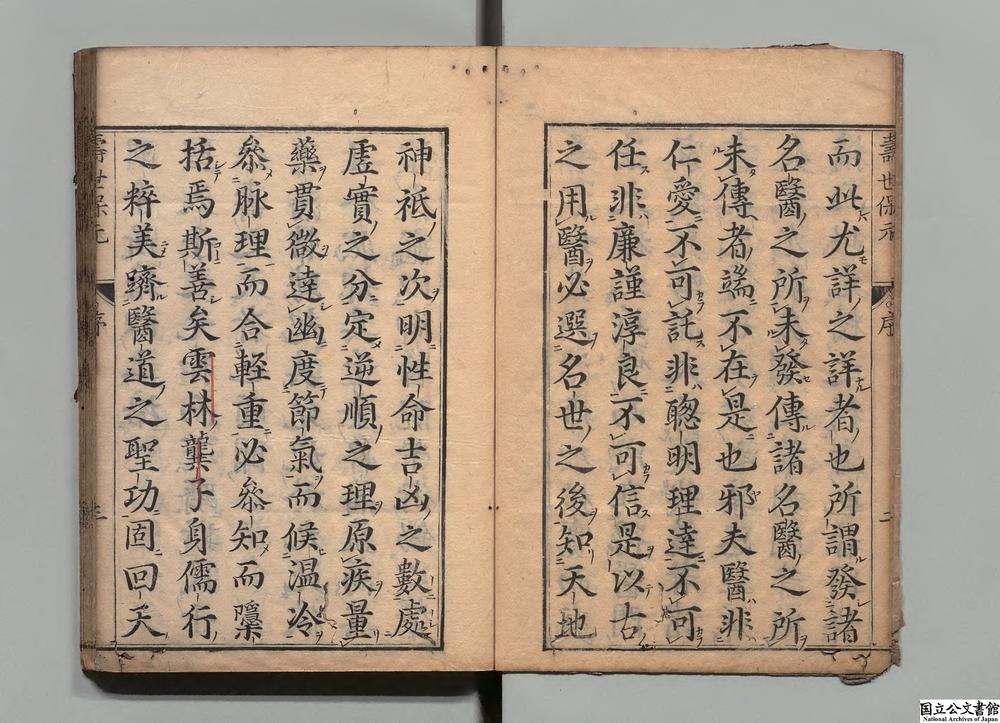 壽世保元
序
二
而此尤詳之詳者也所謂發諸
名醫之所未發傳諸名醫之所
未傳者端不在是也邪夫醫非
仁愛不可託非聰明理達不可
任非廉謹淳良不可信是以古
之用醫必選名世之後知天地
神祇之次明性命吉凶之數處
虛實之分定逆順之理原疾量
藥貫微達幽度節氣而候温冷
叅脉理而合輕重必叅知而隱
括焉斯善矣雲林龔子身儒行
之粹美躋醫道之聖功固回天
壽世保元
序
三
国立公文書館
National Archives of Japan